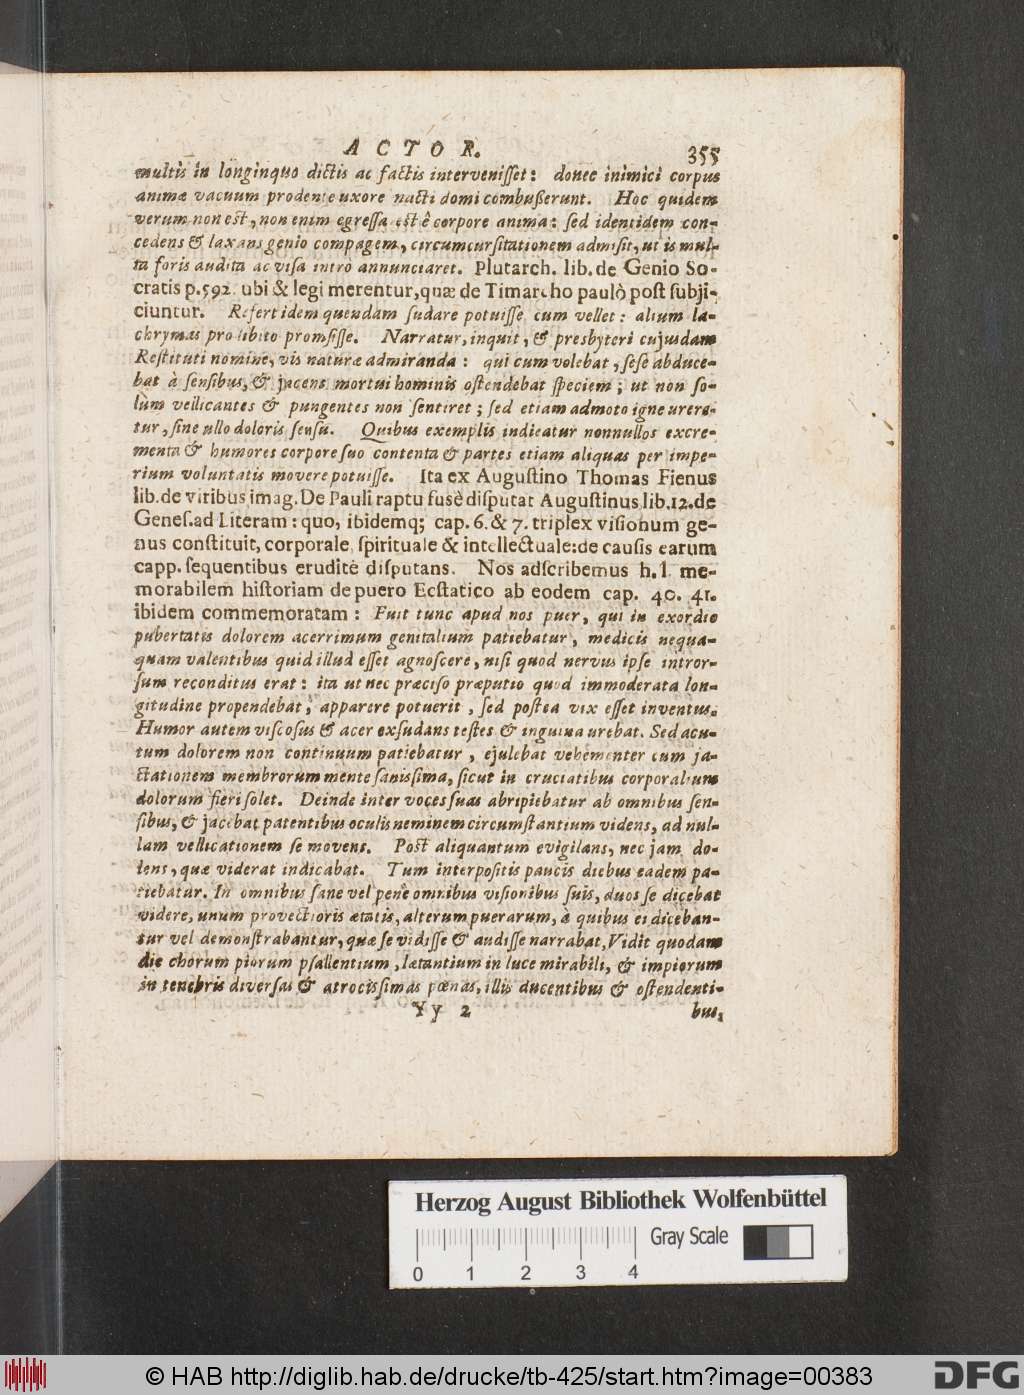 ACTOR. 355
multis in longinquo dictis ac factis intervenisset: donec inimici corpus
animæ vacuum prodente uxore nacti domi combußerunt. Hoc quidem
verum non est, non enim egressa est è corpore anima: sed identidem con-
cedens & laxans genio compagem, circumcursitationem admisit, ut is mul-
ta foris audita ac visa intro annunciaret. Plutarch. lib. de Genio So-
cratis p. 592. ubi & legi merentur, quæ de Timarcho paulò post subji-
ciuntur. Refert idem quendam sudare potuisse, cum vellet: alium la-
chrymas pro libito promsisse. Narratur, inquit, & presbyteri cujusdam
Restituti nomine, vis naturæ admiranda: qui cum volebat, sese abduce-
bat à sensibus, & jacens mortui hominis ostendebat speciem; ut non so-
lùm vellicantes & pungentes non sentiret; sed etiam admoto igne urere-
tur, sine ullo doloris sensu. Quibus exemplis indicatur nonnullos excre-
menta & humores corpore suo contenta & partes etiam aliquas per impe-
rium voluntatis movere potuisse. Ita ex Augustino Thomas Fienus
lib. de viribus imag. De Pauli raptu fusè disputat Augustinus lib. 12. de
Genes. ad Literam: quo, ibidemq; cap. 6. & 7. triplex visionum ge-
nus constituit, corporale, spirituale & intellectuale: de causis earum
capp. sequentibus eruditè disputans. Nos adscribemus h. l. me-
morabilem historiam de puero Ecstatico ab eodem cap. 40. 41.
ibidem commemoratam: Fuit tunc apud nos puer, qui in exordio
pubertatis dolorem acerrimum genitalium patiebatur, medicis nequa-
quam valentibus quid illud esset agnoscere, nisi quod nervus ipse intror-
sum reconditus erat: ita ut nec præciso præputio quod immoderata lon-
gitudine propendebat, apparere potuerit, sed postea vix esset inventus.
Humor autem viscosus & acer exsudans testes & inguina urebat. Sed acu-
tum dolorem non continuum patiebatur, ejulebat vehementer cum ja-
ctationem membrorum mente sanissima, sicut in cruciatibus corporalium
dolorum fieri solet. Deinde inter voces suas abripiebatur ab omnibus sen-
sibus, & jacebat patentibus oculis neminem circumstantium videns, ad nul-
lam vellicationem se movens. Post aliquantum evigilans, nec jam do-
lens, quæ viderat indicabat. Tum interpositis paucis diebus eadem pa-
tiebatur. In omnibus sane vel pene omnibus visionibus suis, duos se dicebat
videre, unum provectioris ætatis, alterum puerarum, à quibus ei diceban-
tur vel demonstrabantur, quæ se vidisse & audisse narrabat, Vidit quodam
die chorum piorum psallentium, lætantium in luce mirabili, & impiorum
in tenebris diversas & atrocissimas pœnas, illis ducentibus & ostendenti-
Yy 2 bus,
Herzog August Bibliothek Wolfenbüttel
Gray Scale
0 1 2 3 4
© HAB http://diglib.hab.de/drucke/tb-425/start.htm?image=00383
DFG